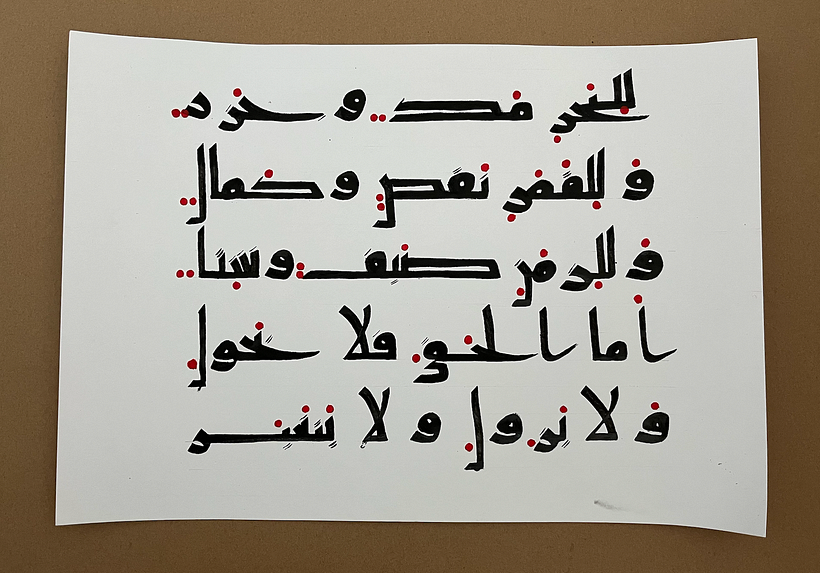 للبحر مد وجزر
وللقمر نقص وكمال
وللزمن صيف وشتا
أما الحق فلا يحول
ولا يزول ولا يتغير